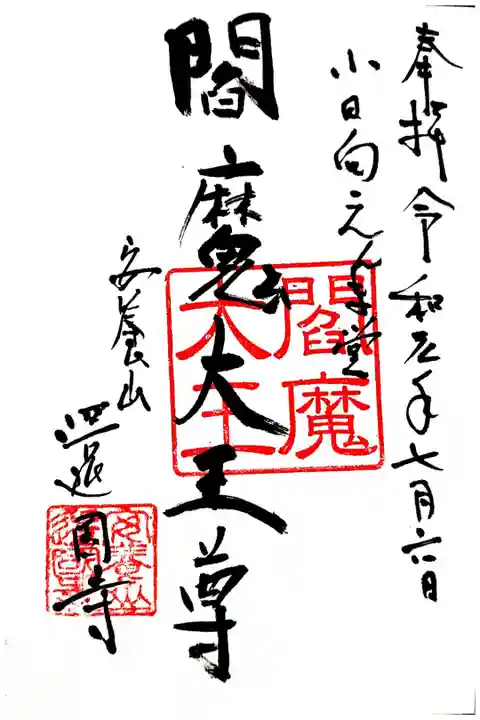 奉拝 令和元年七月六日
小日向えんま堂
閻魔大王尊
閻魔
大王
安養山
還国寺